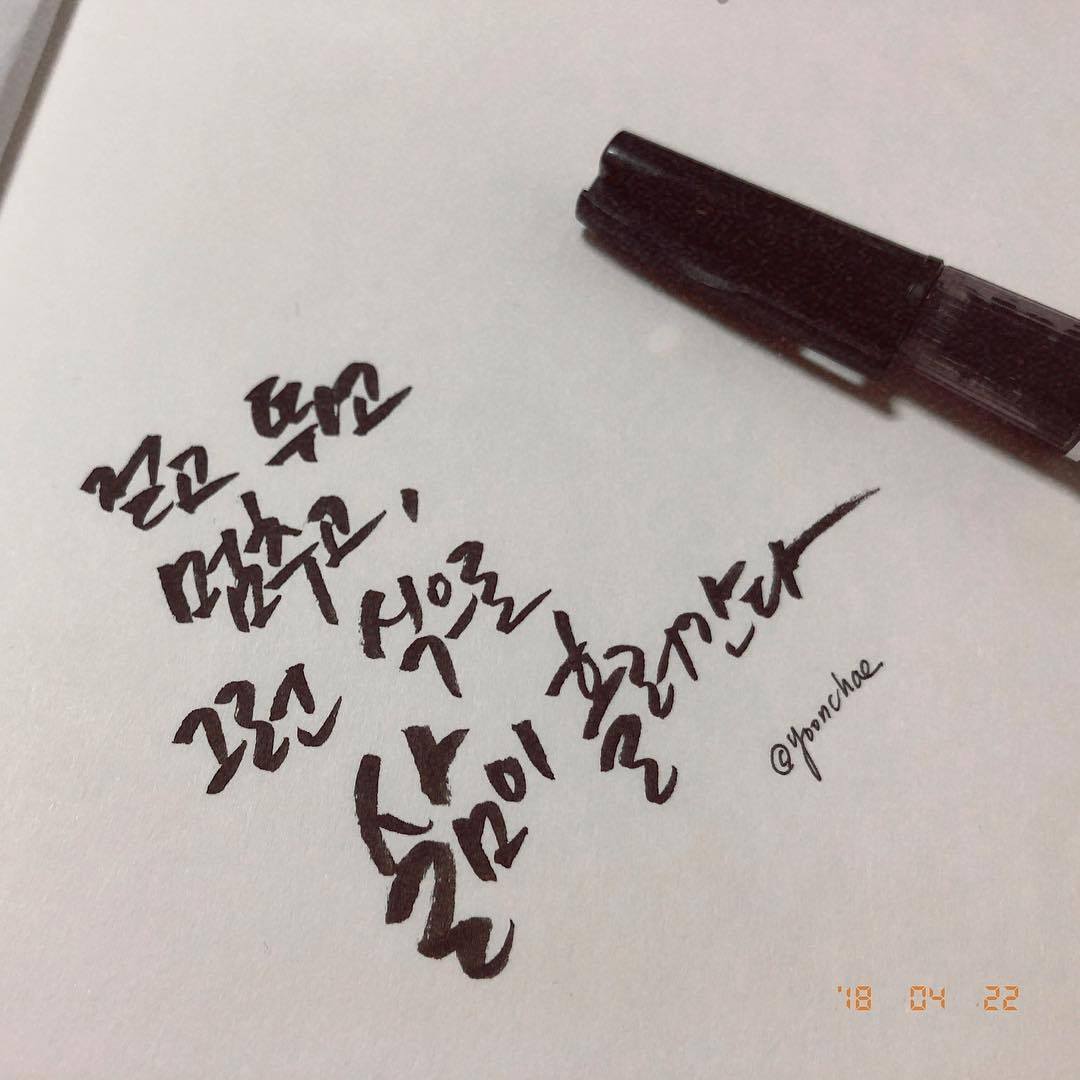 걷고 뛰고
멈추고,
그런 식으로
삶이 흘러간다
@yoonchae
'18 04 22